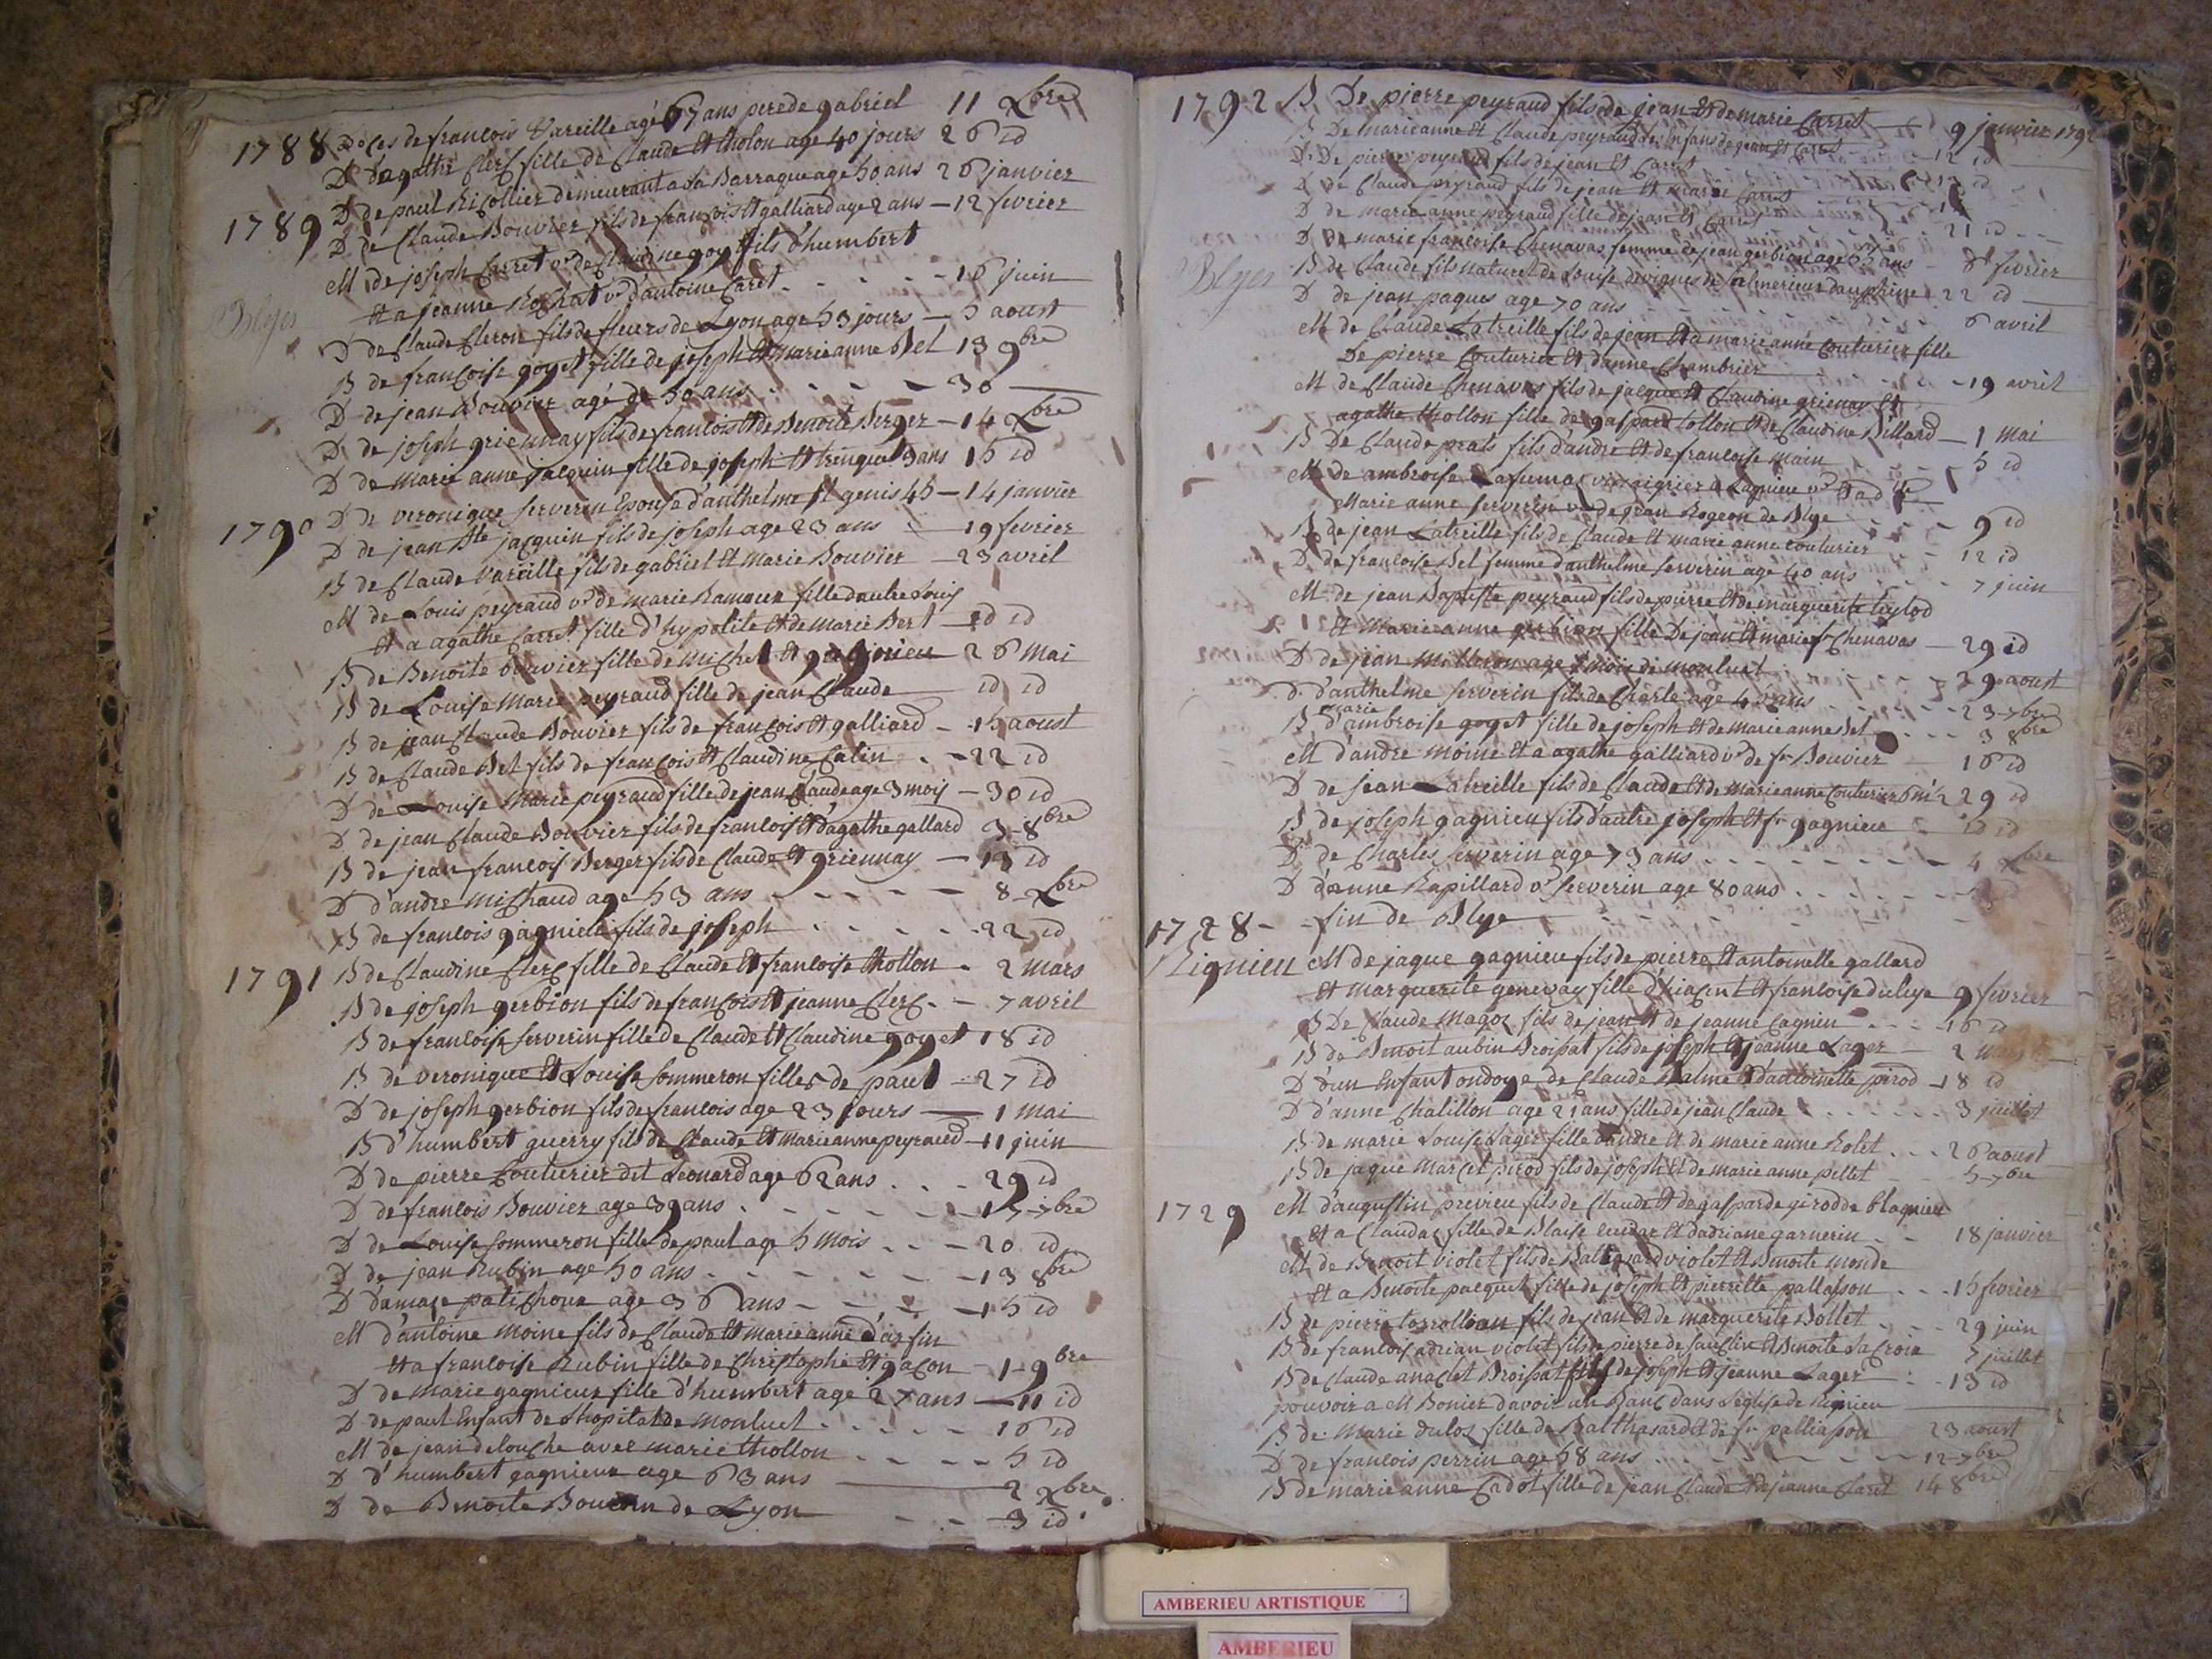 1788 Deces de francois Vareille agé 67 ans pere de gabriel 11 Xbre
D d'agathe Clerc fille de Claude Et tholon age 40 jours 26 id
D de paul Ricollier demeurant a la Barraque age 50 ans 26 janvier
1789 D de Claude Bouvier fils de francois Et galliard age 2 ans – 12 fevrier
M de joseph Carret vf de Claudine goy fils d'humbert
Et a jeanne Rochat ve d'antoine Caret - - - - - 16 juin
Blyes
D de Claude Cleron fils de fleurs de Lyon age 53 jours – 5 aoust
B de francoise goyet fille de joseph Et Marie anne Bel 13 9bre
D de jean Bouvier agé de 50 ans - - - - - 30
D de joseph griennay fils de francois Et de Benoite Berger – 14 Xbre
D de marie anne jacquin fille de joseph Et trenque 3 ans 15 id
1790 D de veronique serverin Epouse d'anthelme St genis 45 – 14 janvier
D de jean Bte jacquin fils de joseph age 23 ans – 19 fevrier
B de Claude Vareille fils de gabriel Et Marie Bouvier – 23 avril
M de Louis peyraud vf de marie Ramaux fille d'autre Louis
Et a agathe Carret fille d'hypolite Et de Marie Bert – id id
B de Benoite bouvier fille de Michel Et gagnieu – 26 Mai
B de Louise Marie peyraud fille de jean Claude – id id
B de jean Claude Bouvier fils de francois Et galliard – 15 aoust
B de Claude Bel fils de francois Et Claudine Catin . – 22 id
D de Louise Marie peyraud fille de jean Claude age 3 mois – 30 id
D de jean Claude Bouvier fils de francois Et d'agathe gallard 3 – 8bre
B de jean francois Berger fils de Claude Et griennay – 13 id
D d'andre Michaud age 53 ans - - - - - 8 – Xbre
B de francois gagnieu fils de joseph . . . . . 22 id
1791 B de Claudine Clerc fille de Claude Et francoise thollon . 2 Mars
B de joseph gerbion fils de francois Et jeanne Clerc . – 7 avril
B de francoise serverin fille de Claude Et Claudine goyet 18 id
B de veronique Et Louise Sommeron filles de paul – 27 id
D de joseph gerbion fils de francois age 23 jours – 1 Mai
B d'humbert guerry fils de Claude Et Marie anne peyraud – 11 juin
D de pierre Couturier dit Leonard age 62 ans . . . 29 id
D de francois Bouvier age 39 ans . - - - - - 17 – 7bre
D de Louise Sommeron fille de paul age 5 mois . . . – 20 id
D de jean Rubin age 50 ans - - - - - – 13 8bre
D d'amase age 36 ans - - - - – 15 id
M d'antoine Moine fils de Claude Et Marie anne
Et a francoise Rubin fille de Christophe Et gacon – 1 – 9bre
D de Marie gagnieux fille d'humbert age 27 ans – 11 id
D de paul Enfant de L'hopital de Monluel . - - - - 16 id
M de jean delouche avec marie thollon - - - - 5 id
D d'humbert gagnieux age 63 ans – 2 Xbre
D de Benoite de Lyon - - - 3 id
1792 B De pierre peyraud fils de jean Et de marie Carret – 9 janvier 1792
B De marie anne Et Claude peyraud enfans de jean Et Carret – 12 id
D De pierre peyraud fils de jean Et Carret id
D De Claude peyraud fils de jean Et marie Carret
D de marie anne peyraud fille de jean Et Carret - - 21 id
D de marie francoise Chenavas femme de jean gerbion age 55 ans – 8 fevrier
Blyes B de Claude fils naturel de Louise devignes de Salmerieu dauphine 22 id
D de jean paques age 70 ans - - - - - 6 avril
M de Claude Latreille fils de jean Et a marie anne Couturier fille
De pierre Couturier Et d'anne Chambrier - - - 19 avril
M de Claude Chenavas fils de jacque Et Claudine grienay Et
agathe thollon fille de gaspard tollon Et de Claudine Billard – 1 Mai
B De Claude prals fils d'andre Et de francoise main 5 id
M de ambroise a Lagnieu
Marie anne serverin ve de jean Rogeon de Blye - - - 9 id
B de jean Latreille fils de Claude Et marie anne couturier - - 12 id
D de francoise Bel femme d'anthelme serverin age 40 ans - - 7 juin
M de jean Baptiste peyraud fils de pierre Et de marguerite
Et Marie anne gerbion fille De jean Et marie fse Chenavas – 29 id
D de jean age mois de monluel 29 aoust
D d'anthelme serverin fils de Charle age 42 ans - - - 23 – 7bre
marie
B d'ambroise goyet fille de joseph Et de marie anne Bel . . . 3 8bre
M d'andre moine Et a agathe galliard ve de fr Bouvier – 16 id
D de jean Latreille fils de Claude Et de Marie anne Couturier 29 id
B de joseph gagnieu fils d'autre joseph Et fr gagnieu – id id
D de Charles serverin age 73 ans - - - - - - - 4 Xbre
D d'anne Rapillard ve serverin age 80 ans . . .
1728 - - fin de Blye - - - - -
Rignieu M de jaque gagnieu fils de pierre Et antoinette gallard
Et Marguerite genevay fille d'hiacint Et francoise 9 fevrier
B De Claude Magoz fils de jean Et de jeanne Cagnin . - - 16 id
B de Benoit aubin Broissat fils de joseph Et jeanne Lager – 2
D d'un Enfant ondoyé de Claude Balme Et d'antoinette pirod – 18 id
D d'anne Chatillon age 21 ans fille de jean Claude . . . . . 3 juillet
B de marie Louise Lager fille d'andre Et de marie anne Rolet . . . 26 aoust
B de jaque Marcel pirod fils de joseph Et de marie anne pellet 5 – 7bre
1729 M d'augustin prevrieu fils de Claude Et de gasparde girod de blagnieu
Et a Claudaz fille de Blaise Et d'adriane garnerin - - 18 janvier
M de Benoit violet fils de Baltazard violet Et Benoite monde
Et a Benoite pacquet fille de joseph Et pierrette pallasson . . . 15 fevrier
B de pierre fils de jean Et de marguerite Bollet . . . 29 juin
B de francois adrian violet fils de pierre de Et Benoite Lacroix 7 juillet
B de Claude anaclet Broissat fils de joseph Et jeanne Lager . . 13 id
pouvoir a M Bonier d'avoir un Banc dans L'eglise de Rignieu
B de Marie dulos fille de Balthasard Et de fr palliasson 23 aoust
D de francois perrin age 58 ans . - - - - - 12 – 7bre
B de marie anne Cadot fille de jean Claude Et de jeanne Claret 14 8bre
AMBERIEU ARTISTIQUE
AMBERIEU